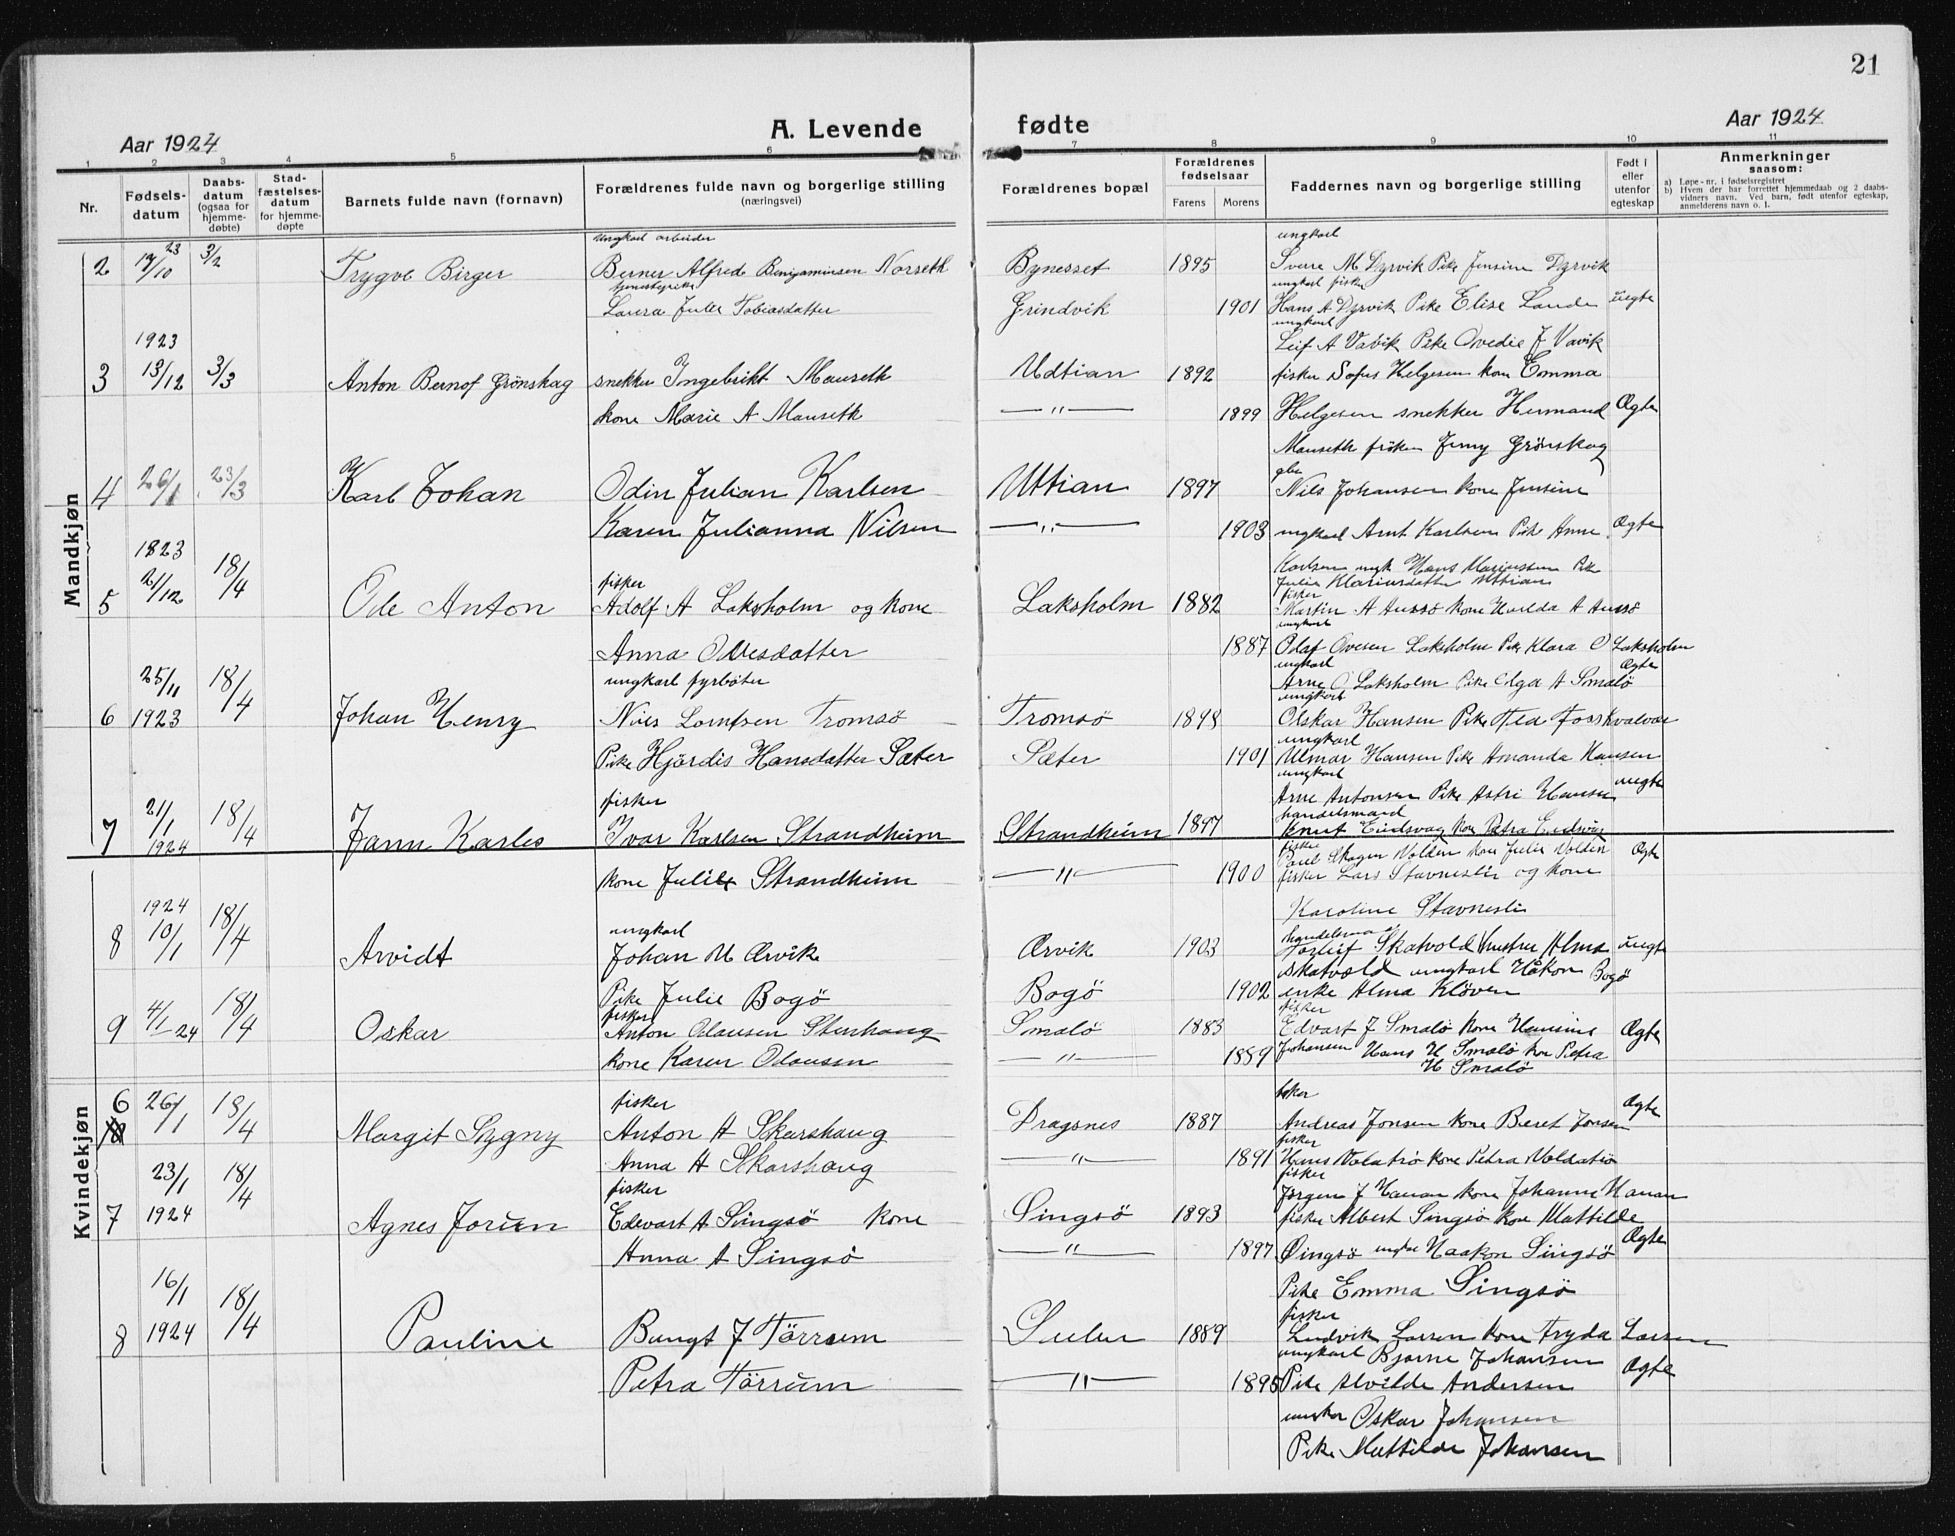 21
Aar 1924
A. Levende fødte
Aar 1924
1 2 3 4 5 6 7 8 9 10 11
Nr.
Fødsels-datum
Daabs-datum (ogsaa for hjemme-døbte)
Stad-fæstelses-datum for hjemme-døpte
Barnets fulde navn (fornavn)
Forældrenes fulde navn og borgerlige stilling (næringsvei)
Forældrenes bopæl
Forældrenes fødselsaar
Farens Morens
Faddernes navn og borgerlige stilling
Født i eller utenfor egteskap
Anmerkninger saasom:
a) Løpe-nr. i fødselsregistret
b) Hvem der har forrettet hjemmedaab og 2 daabs-vidners navn. Ved barn, født utenfor egteskap, anmelderens navn o. l.
Mandkjøn
ungkarl arbeider ungkarl
2 17/10 23 3/2 Trygve Birger Berner Alfred Benjaminsen Norseth Bynesset 1895 Sverre M Dyrvik Pike Jensine Dyrvik
tjenestepike ungkarl fisker
Laura Julie Tobiasdatter Grindvik 1901 Hans A Dyrvik Pike Elise Lande uegte
ungkarl
1923 Leif A Vavik Pike Ovedie J Vavik
3 13/12 3/3 Anton Bernof Grönskag snekker Ingebrikt Mauseth Udtian 1892 fisker Sofus Helgesen kone Emma
kone Marie A Mauseth —"— 1899 Helgesen snekker Hermand Ægte
Mauseth fröken Jenny Grönskag
4 26/1 23/3 Karl Johan Odin Julian Karlsen Uttian 1897 Nils Johansen kone Jensine
Karen Julianna Nilsen —"— 1903 ungkarl Arnt Karlsen Pike Anne Ægte
1823 Karlsen ungk Hans Mariussen Pike
Julie Klariusdatter Uttian
fisker fisker
5 21/12 18/4 Ode Anton Adolf A Laksholm og kone Laksholm 1882 Martin A Aursö kone Halda A Aursö
ungkarl
Anna Ovesdatter 1887 Olaf Ovesen Laksholm Pike Klara O Laksholm
25/11 18/4 ungkarl fyrböter ungkarl Ægte
Arne O Laksholm Pike Olga A Smalö
ungkarl
6 1923 Johan Henry Nils Lorntsen Tromsö Tromsö 1898 Olskar Hansen Pike Fossh
ungkarl
Pike Hjördis Hansdatter Sæter Sæter 1901 Ulmar Hansen Pike Amanda Hansen
ungkarl
21/1 18/4 fisker Arne Antonsen Pike Astri Hansen uegte
handelsmand
7 1924 Jann Karles Ivar Karlsen Strandheim Strandheim 1897 Knut Eidsvag kone Petra Eidsvag
fisker
Paul Skagen Volden kone Julie Volden Ægte
kone Julie Strandheim —"— 1900 fisker Lars Stavneslie og kone
1924 Karoline Stavnesli
ungkarl handelsmand
8 10/1 18/4 Arvidt Johan M Ærvik Ærvik 1903 Torleif Skatvold hustru Alma uegte
Skatvold ungkarl Håkon Bogö
Pike Julie Bogö Bogö 1902 enke Alma Klöven
fisker fisker
9 4/1 24 18/4 Oskar Anton Olausen Stenhaug Smalö 1883 Edvart J Smalö kone Hansine Ægte
kone Karen Olausen —"— 1889 Johansen Hans H Smalö kone Petra
H Smalö
Kvindekjøn
6 26/1 18/4 fisker Ægte
Margit Sygny Anton A Skarshaug Dragsnes 1887 Andreas Jonsen kone Beret Jonsen
fisker
Anna A Skarshaug —"— 1891 Hans Valatiö kone Petra
fisker fisker
23/1 18/4 Jörgen J Hanan kone Johanne Hanan
7 1924 Agnes Jorun Edevart A Singsö kone Singsö 1893 fisker Albert Singsö kone Mattilde
Anna A Singsö —"— 1897 Singsö Haakon Singsö Ægte
16/1 18/4 Pike Emma Singsö
fisker
8 1924 Pauline Bengt J Törrum Suler 1889 Ludvik Larsen kone Fryda Larsen
ungkarl Bjarne Johansen Ægte
Petra Törrum —"— 1895 Pike Alvilde Andersen
ungkar Oskar Johansen
Pike Mattilde Johansen